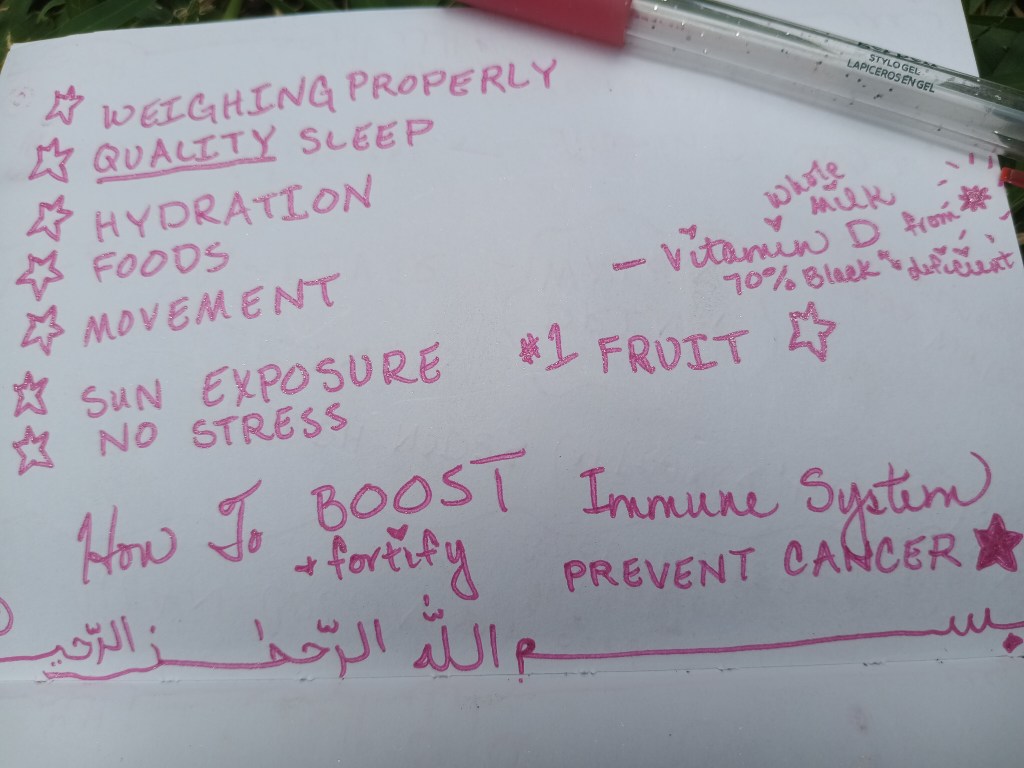 STYLO GEL
LAPICEROS EN GEL
WEIGHING PROPERLY
QUALITY SLEEP
HYDRATION
FOODS
MOVEMENT
SUN EXPOSURE
NO STRESS
whole
milk
- Vitamin D from
70% Black deficient
#1 FRUIT
How To BOOST Immune System
+ fortify PREVENT CANCER
بسم الله الرّحمٰن الرّحيم